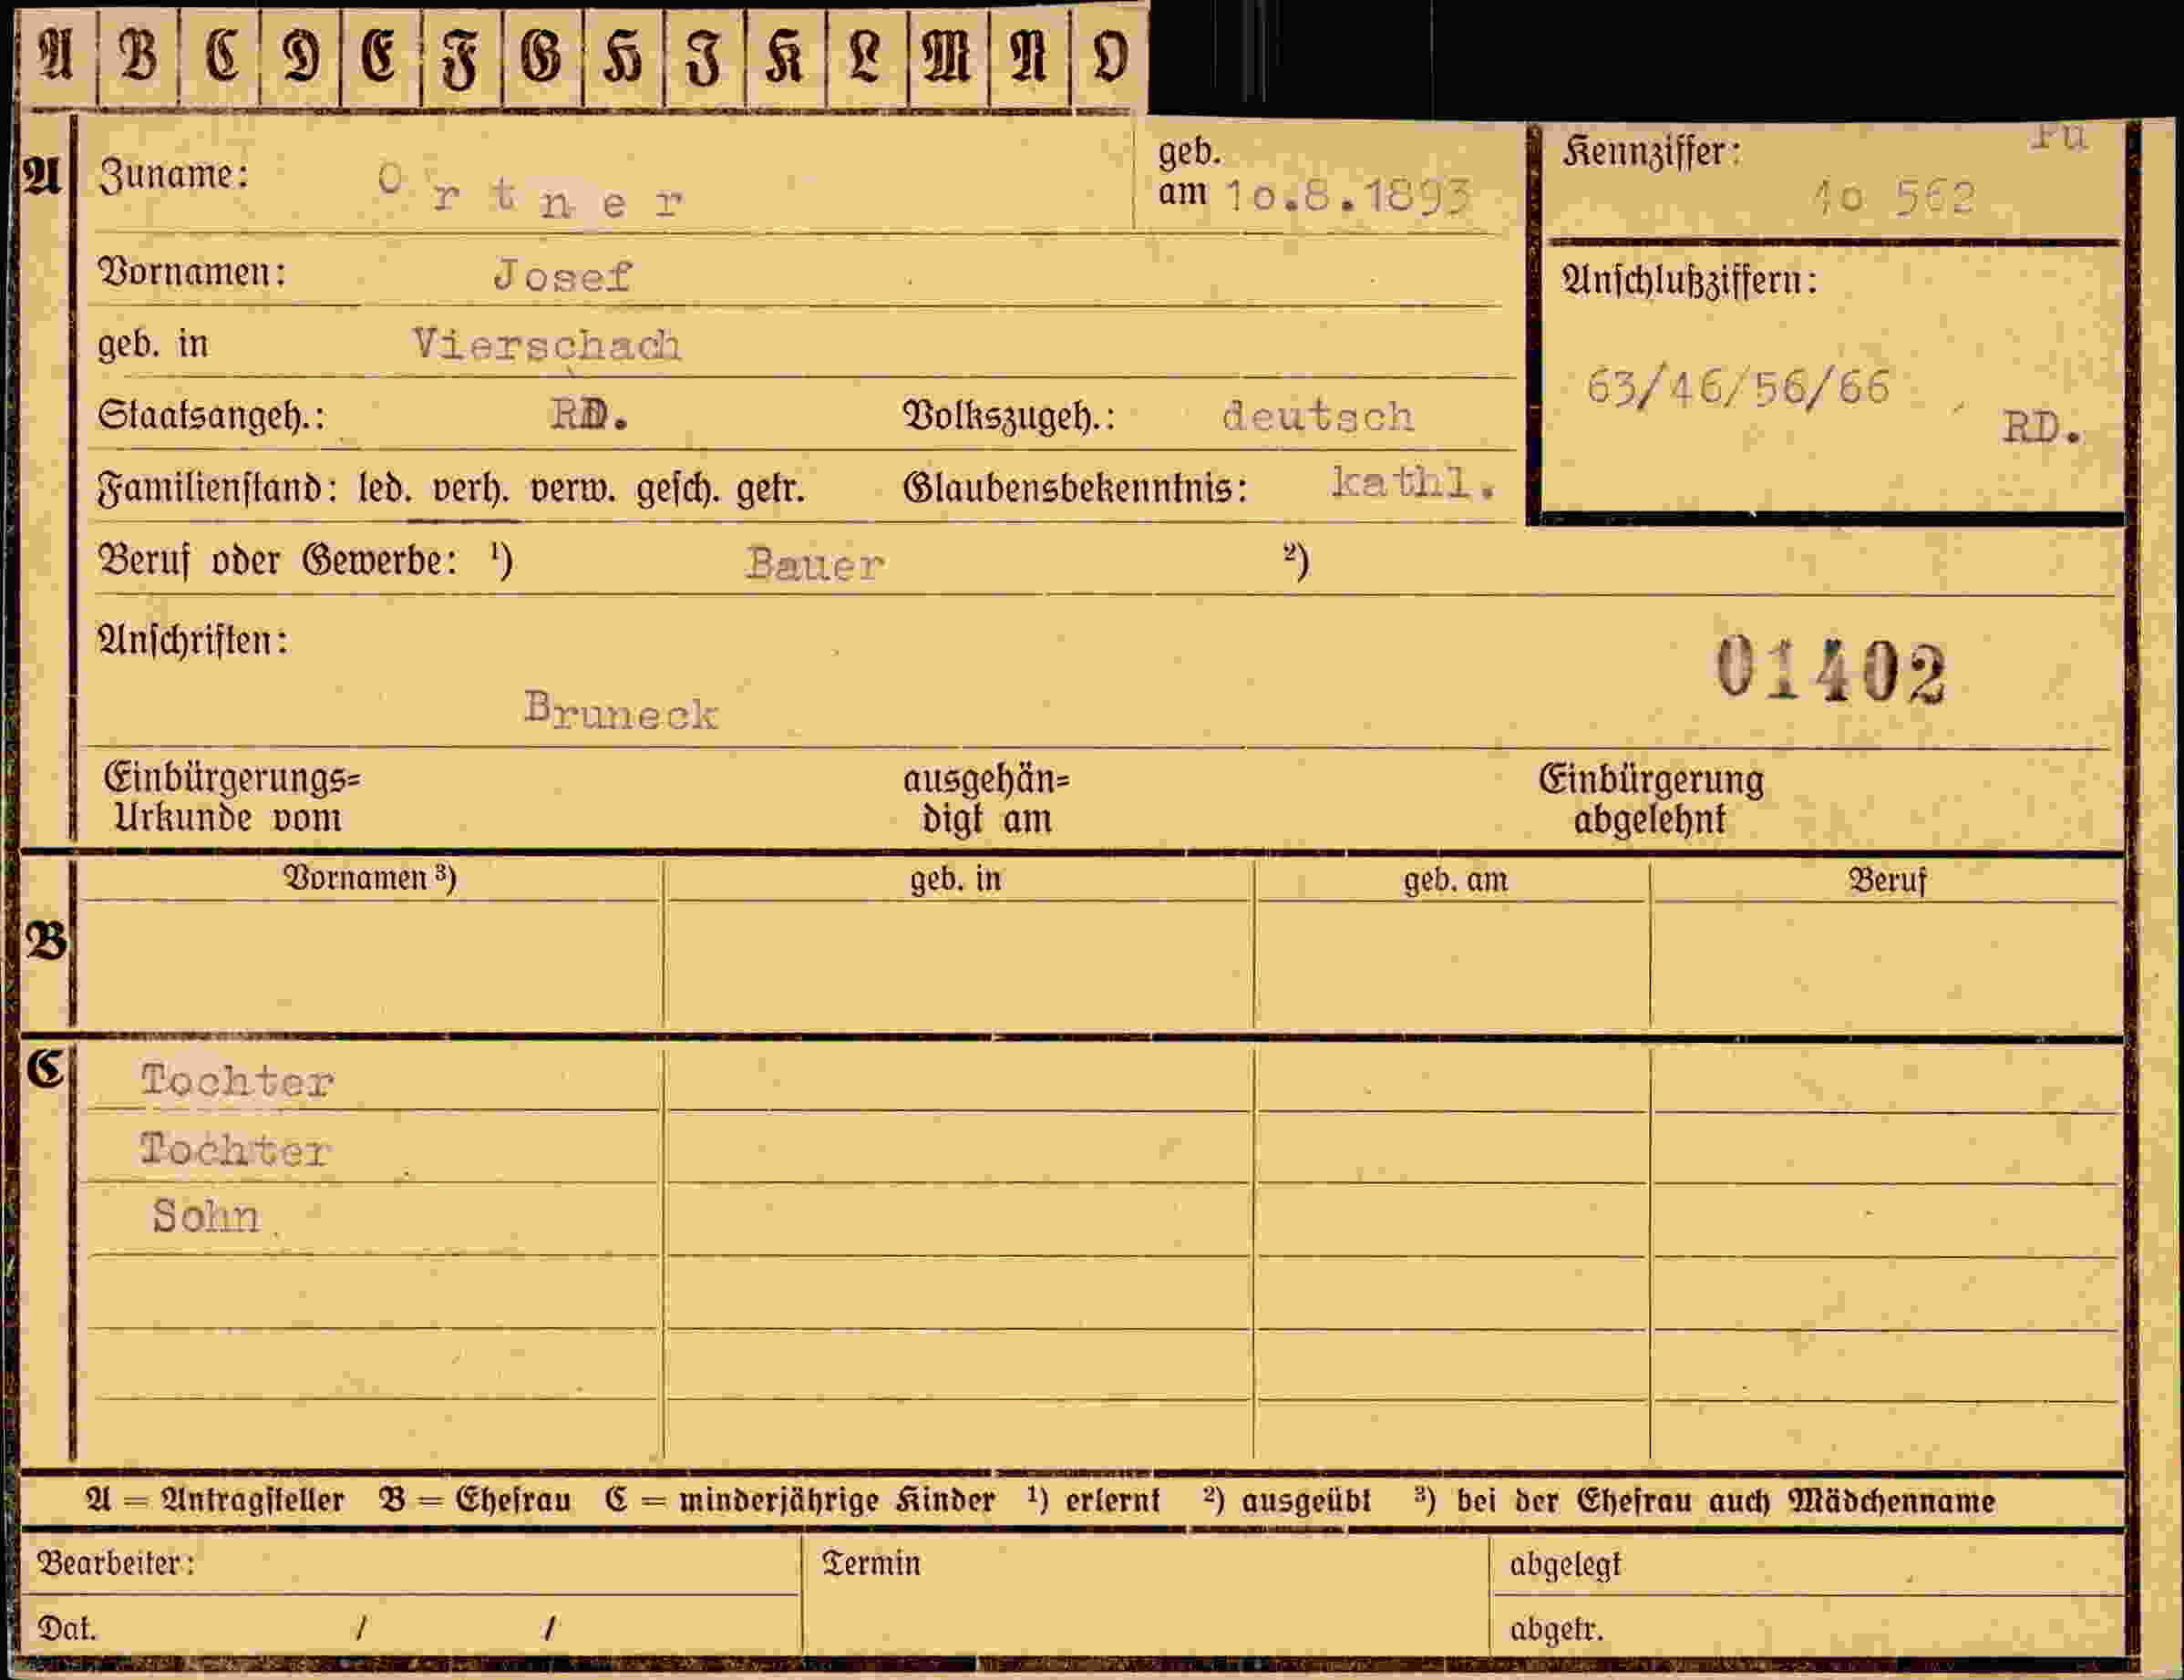 A B C D E F G H I K L M N O
A Zuname: Ortner geb. am 10.8.1893 Kennziffer: 40 562
Vornamen: Josef Anschlußziffern:
geb. in Vierschach 63/46/56/66 RD.
Staatsangeh.: RD. Volkszugeh.: deutsch
Familienstand: led. verh. verw. gesch. getr. Glaubensbekenntnis: kathl.
Beruf oder Gewerbe: ¹) Bauer ²)
Anschriften: 01402
Bruneck
Einbürgerungs= ausgehän= Einbürgerung
Urkunde vom digt am abgelehnt
Vornamen ³) geb. in geb. am Beruf
B
C Tochter
Tochter
Sohn
A = Antragsteller B = Ehefrau C = minderjährige Kinder ¹) erlernt ²) ausgeübt ³) bei der Ehefrau auch Mädchenname
Bearbeiter: Termin abgelegt
Dat. / / abgetr.